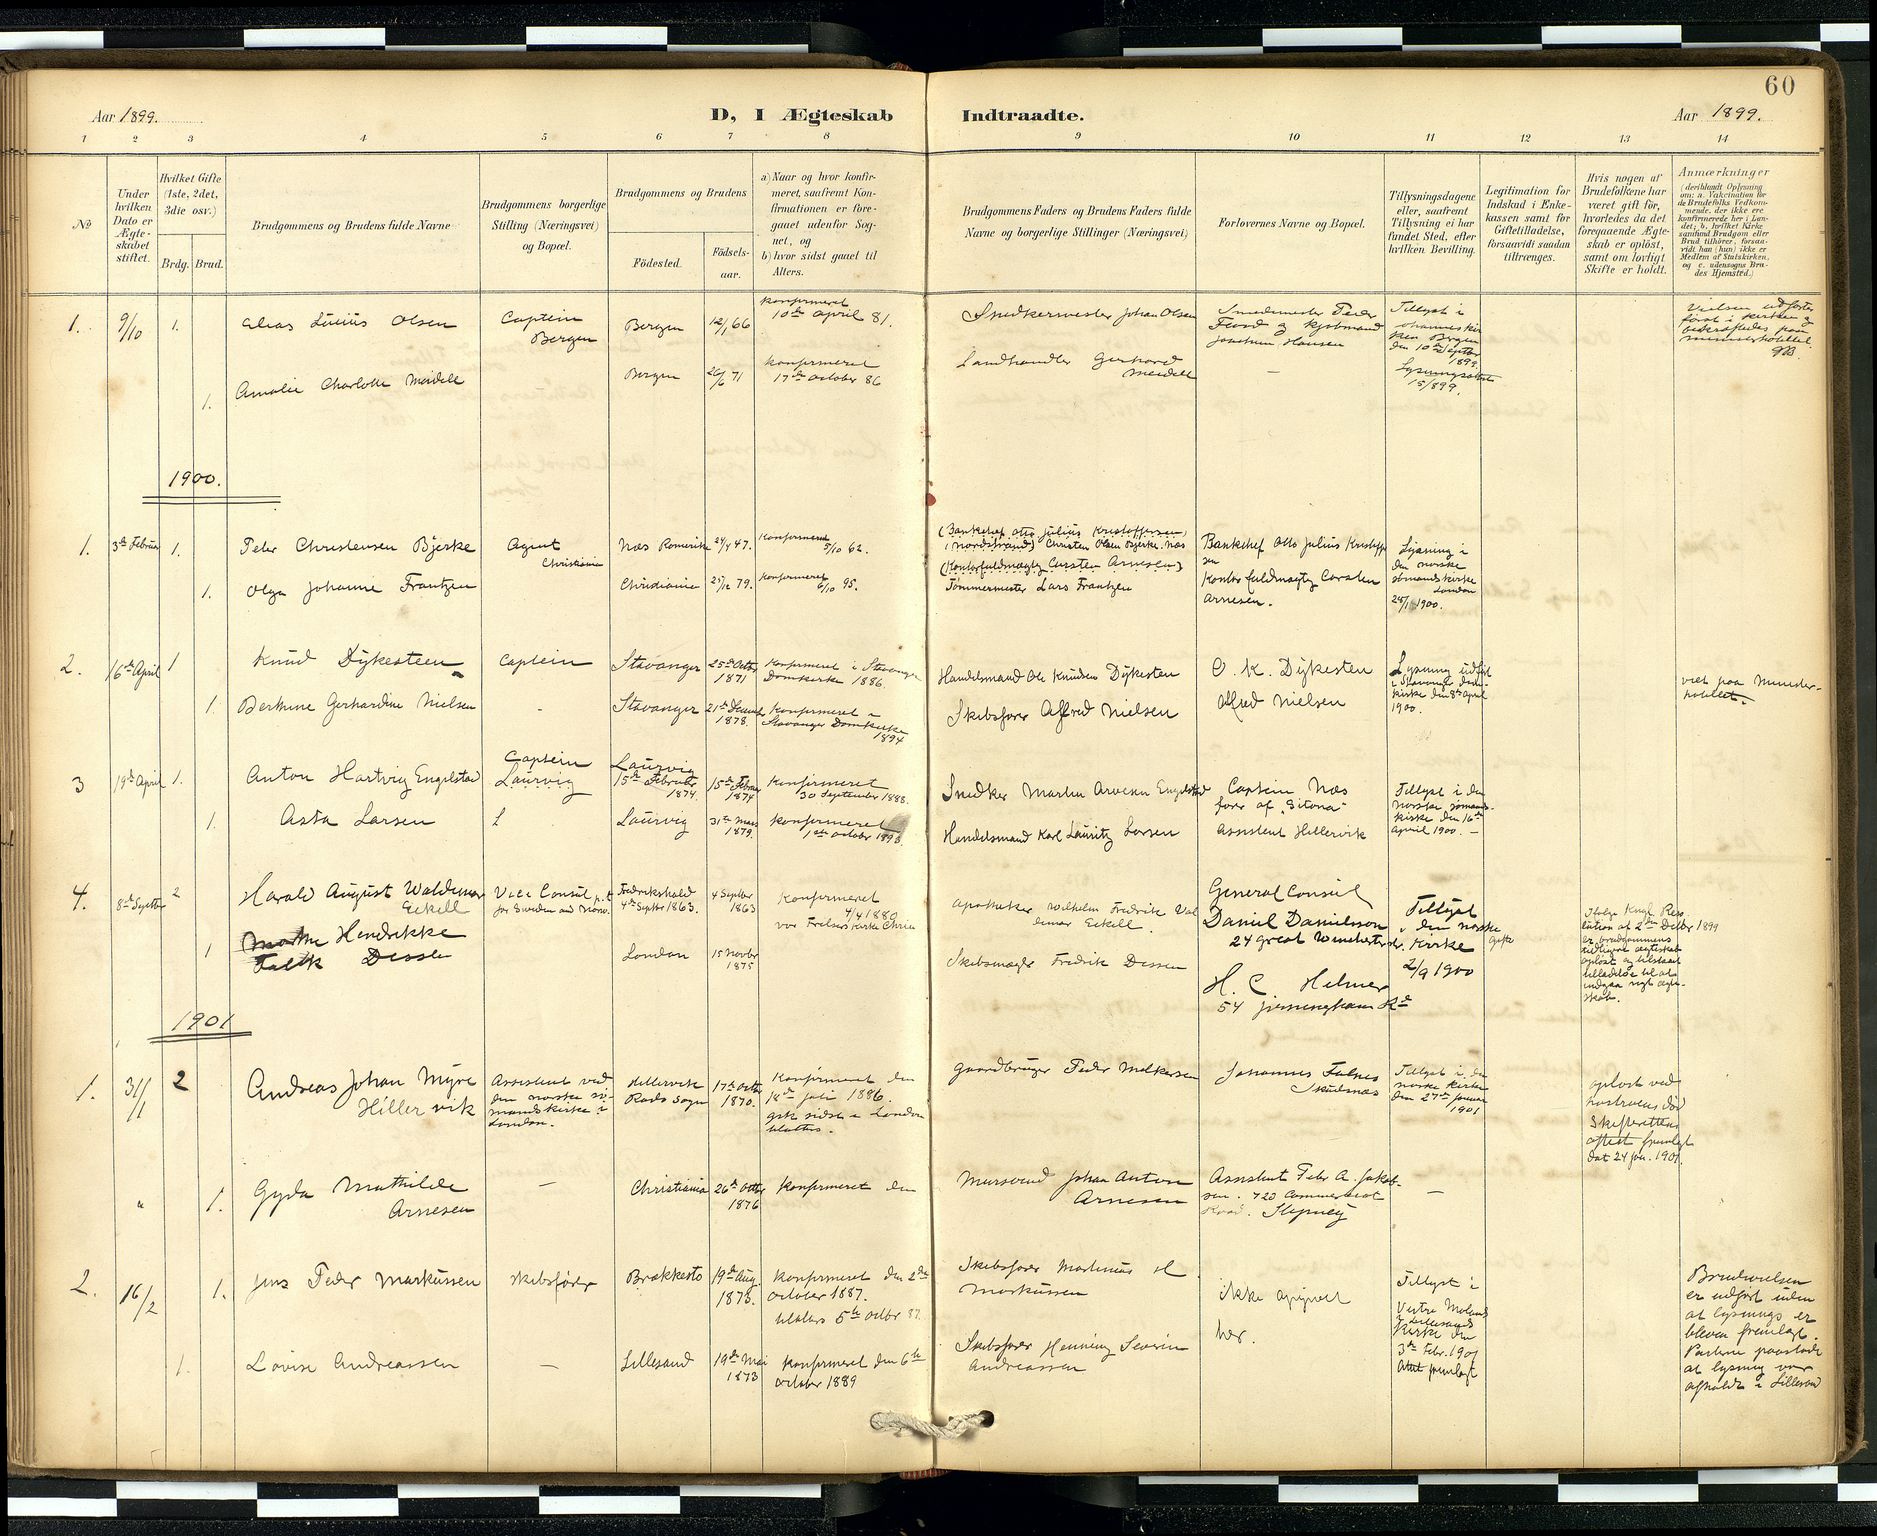 60
Aar 1899.
D, I Ægteskab Indtraadte.
Aar 1899.
1 2 3 4 5 6 7 8 9 10 11 12 13 14
№
Under
hvilken
Dato er
Ægte-
skabet
stiftet.
Hvilket Gifte
(1ste, 2det,
3die osv.)
Brdg. Brud.
Brudgommens og Brudens fulde Navne
Brudgommens borgerlige
Stilling (Næringsvei)
og Bopæl.
Brudgommens og Brudens
Fødested.
Fødsels-
aar.
a) Naar og hvor konfir-
meret, saafremt Kon-
firmationen er fore-
gaaet udenfor Sog-
net, og
b) hvor sidst gaaet til
Alters.
Brudgommens Faders og Brudens Faders fulde
Navne og borgerlige Stillinger (Næringsvei)
Forlovernes Navne og Bopæl.
Tillysningsdagene
eller, saafremt
Tillysning ei har
fundet Sted, efter
hvilken Bevilling.
Legitimation for
Indskud i Enke-
kassen samt for
Giftetilladelse,
forsaavidt saadan
tiltrænges.
Hvis nogen af
Brudefolkene har
været gift før,
hvorledes da det
foregaaende Ægte-
skab er opløst,
samt om lovligt
Skifte er holdt.
Anmærkninger
(deriblandt Oplysning
om: a. Vakcination for
de Brudefolks Vedkom-
mende, der ikke ere
konfirmerede her i Lan-
det; b. hvilket Kirke
samfund Brudgom eller
Brud tilhører, forsaa-
vidt han (hun) ikke er
Medlem af Statskirken,
og c. udensogns Bru-
des Hjemsted.)
1. 9/10 1.
Olsen
Captein
Bergen
Bergen
12/1 66
konfirmeret
10de april 81.
Snedkermester Johan Olsen
Snedmester Peder
og Kjøbmand
Hansen
Tillyst i
Johanneskir
ken Bergen
den 10de Septbr
1899.
Lysningsattest
15/899.
Vielsen udførtes
først i kirken og
bekræftedes paa
ministerhotellet.
1.
Amalie Charlotte Meidell
Bergen
26/6 71
konfirmeret
17de october 86
Landhandler Gerhard
Meidell
—
1900.
1. 3de Februar 1.
Peter Christensen Bjerke
Agent
Christiania
Næs Romerike
47.
Konfirmeret
5/10 62.
(Bankchef Otto Julius Kristoffersen,
i Nordstrand) Christen Olsen Bjerke. Næs
Bankchef Otto Julius Kristoffer
sen
Lysning i
den norske
sømandskirke
London
1900.
1.
Olga Johanne Frantzen
Christiania
25/12 79.
Konfirmeret
6/10 95.
(Kontorfuldmægtig Carsten Arnesen)
Tømmermester Lars Frantzen
Kontorfuldmægtig Carsten
Arnesen.
2. 16de April 1
Knud Dykesteen
Captein
Stavanger
25de Octbr
1871
Konfirmeret i Stavanger
Domkirke 1886.
Handelsmand Ole Knudsen Dykesten
O. K. Dykesten
Lysning udført
i Stavanger dom-
kirke den 8de april
1900.
viet paa Minister-
hotellet.
1.
Berthine Gerhardine Nielsen
-
Stavanger
21de Decmbr
1878.
Konfirmeret i
Stavanger Domkirke
1894
Skibsfører Alfred Nielsen
Alfred Nielsen
3 19de April 1.
Anton Hartvig Engelstad
Captein
Laurvig
Laurvig
15de Februar
1874.
15de Februar
1874
konfirmeret
30 September 1888.
Snedker Martin Engelstad
Captein Næs
fører af "Sitona"
Tillyst i den
norske sømands-
kirke den 16de
april 1900. —
1.
Asta Larsen
Laurvig
31te Mars
1879.
konfirmeret
1ste october 1893.
Handelsmand Karl Lauritz Larsen
Assistent Hillervik
4. 8de Septbr 2
Harald August Waldemar
Eckell
Vice Consul p. t.
for Sweden and Norw.
Fredrikshald
4de Septbr 1863.
4 Septbr
1863
Konfirmeret
4/4 1880
vor Frelsers Kirke Chria
Apotheker Wilhelm Fredrik Val
demar Eckell.
General Consul
Daniel Danielsson
24 Great Winchester str.
Tillyst
i den norske
Kirke
2/9 1900
Gifte
Ifølge Kngl. Reso
lution af 2den Decbr 1899
er brudgommens
tidligere ægteskab
opløst og tilstaaet
tilladelse til at
indgaa nyt ægte-
skab.
1
Marthe Hendrikke
Falck Dessen
London
15 Novbr
1875
Skibsmægler Fredrik Dessen
H. C. Helmer
54 Jerningham Rd
1901
1. 31/1 2
Andreas Johan Myre
Hillervik
Assistent ved
den norske sø-
mandskirke i
London.
Hillervik
17de Octbr
1870.
Konfirmeret den
18de juli 1886.
gik sidst i London
tilalters.
Gaardbruger Peder Melkersen
Johannes Falnes
Skudesnæs
Tillyst i den
norske kirke
den 27de januar
1901
opløst ved
hustruens død
Skifterettens
attest fremlagt
dat 24 jan. 1901.
" 1.
Gyda Mathilde
Arnesen
—
Christiania
26de Octbr
1876
konfirmeret den
Mursvend Johan Anton
Arnesen
Assistent Peter A. Jakob-
sen. 720 Commercial
Road. Stepney
—
2. 16/2 1.
Jens Peder Markussen
skibsfører
Brækkestø
19de Aug.
1873.
konfirmeret den 2den
october 1887.
tilalters 5te octbr 87.
Skibsfører Martinius
Markussen
ikke opgivet
her.
Tillyst i
Vestre Moland
& Lillesands
Kirke den
3de Febr. 1901
Attest fremlagt
Brudevielsen
er udført uden
at lysnings er
bleven fremlagt.
Parterne paastode
at lysning var
afholdt i Lillesand
1.
Lovise Andreassen
—
Lillesand
19de Mai
1873
konfirmeret den 6te
october 1889
Skibsfører Henning Severin
Andreassen